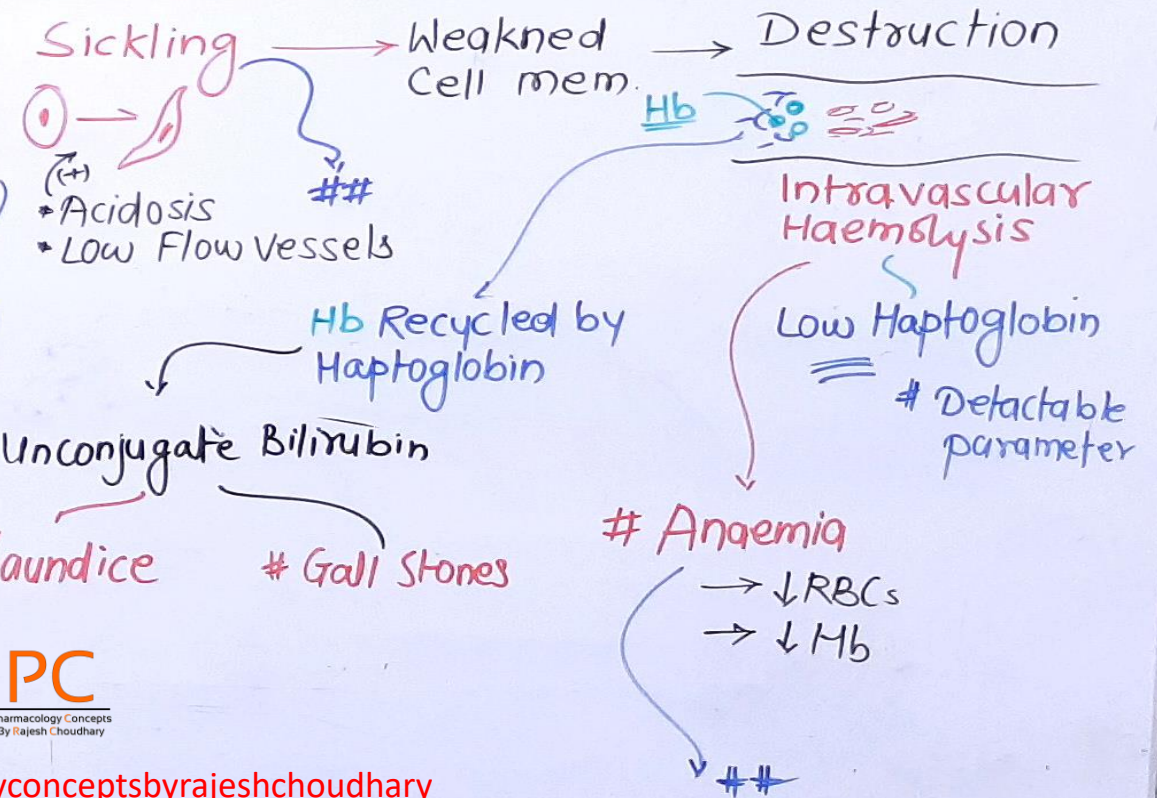 Sickling → Weakned → Destruction
Cell mem.
Hb
(+)
##
• Acidosis
• Low Flow Vessels
Intravascular
Haemolysis
Hb Recycled by
Haptoglobin
Low Haptoglobin
# Detactable
parameter
Unconjugate Bilirubin
aundice
# Gall Stones
# Anaemia
→ ↓RBCs
→ ↓Hb
##
PC
harmacology Concepts
By Rajesh Choudhary
yconceptsbyrajeshchoudhary